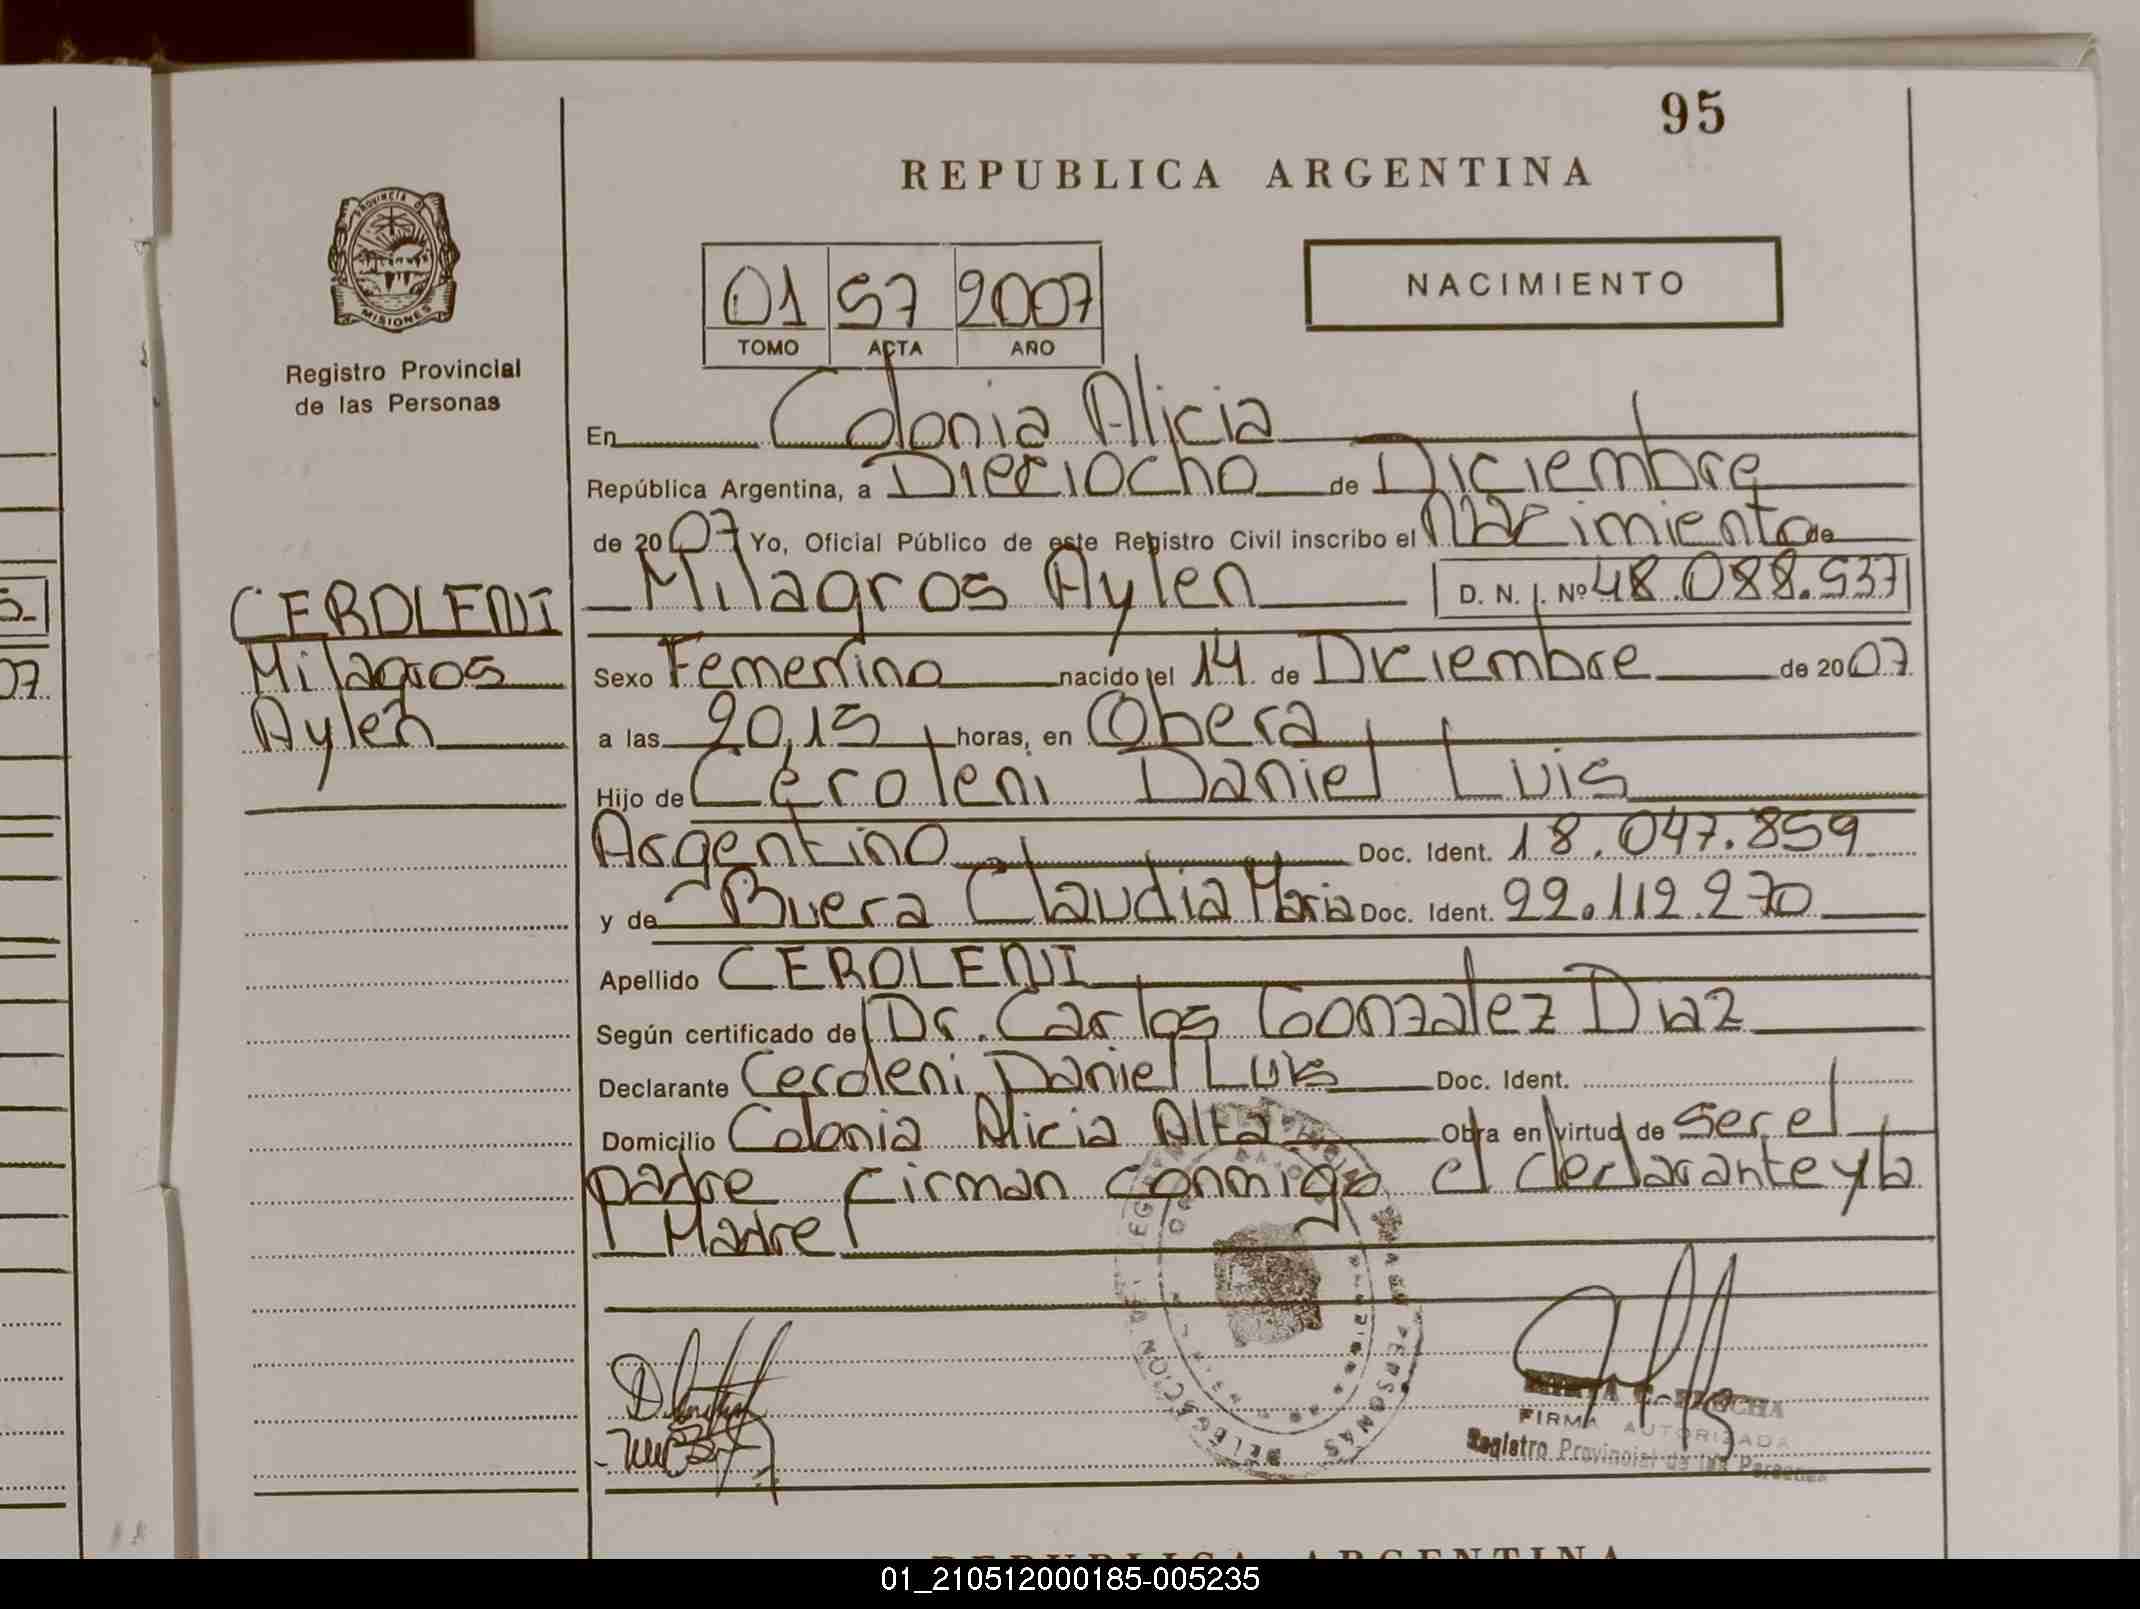 95
REPUBLICA ARGENTINA
PROVINCIA DE
MISIONES
Registro Provincial
de las Personas
01 57 2007
TOMO ACTA AÑO
NACIMIENTO
En Colonia Alicia
República Argentina, a Dieciocho de Diciembre
de 2007 Yo, Oficial Público de este Registro Civil inscribo el Nacimiento de
Milagros Aylen D. N. I. Nº 48.088.537
CEROLENI
Milagros
Aylen
Sexo Femenino nacido el 14 de Diciembre de 2007
a las 20,15 horas, en Obera
Hijo de Ceroleni Daniel Luis
Argentino Doc. Ident. 18.047.859
y de Buera Claudia Maria Doc. Ident. 22.112.270
Apellido CEROLENI
Según certificado de Dr. Carlos Gonzalez Diaz
Declarante Ceroleni Daniel Luis Doc. Ident.
Domicilio Colonia Alicia Alta Obra en virtud de ser el
padre Firman conmigo el declarante y la
Madre
FIRMA AUTORIZADA
Registro Provincial de las Personas
REPUBLICA ARGENTINA
01_210512000185-005235